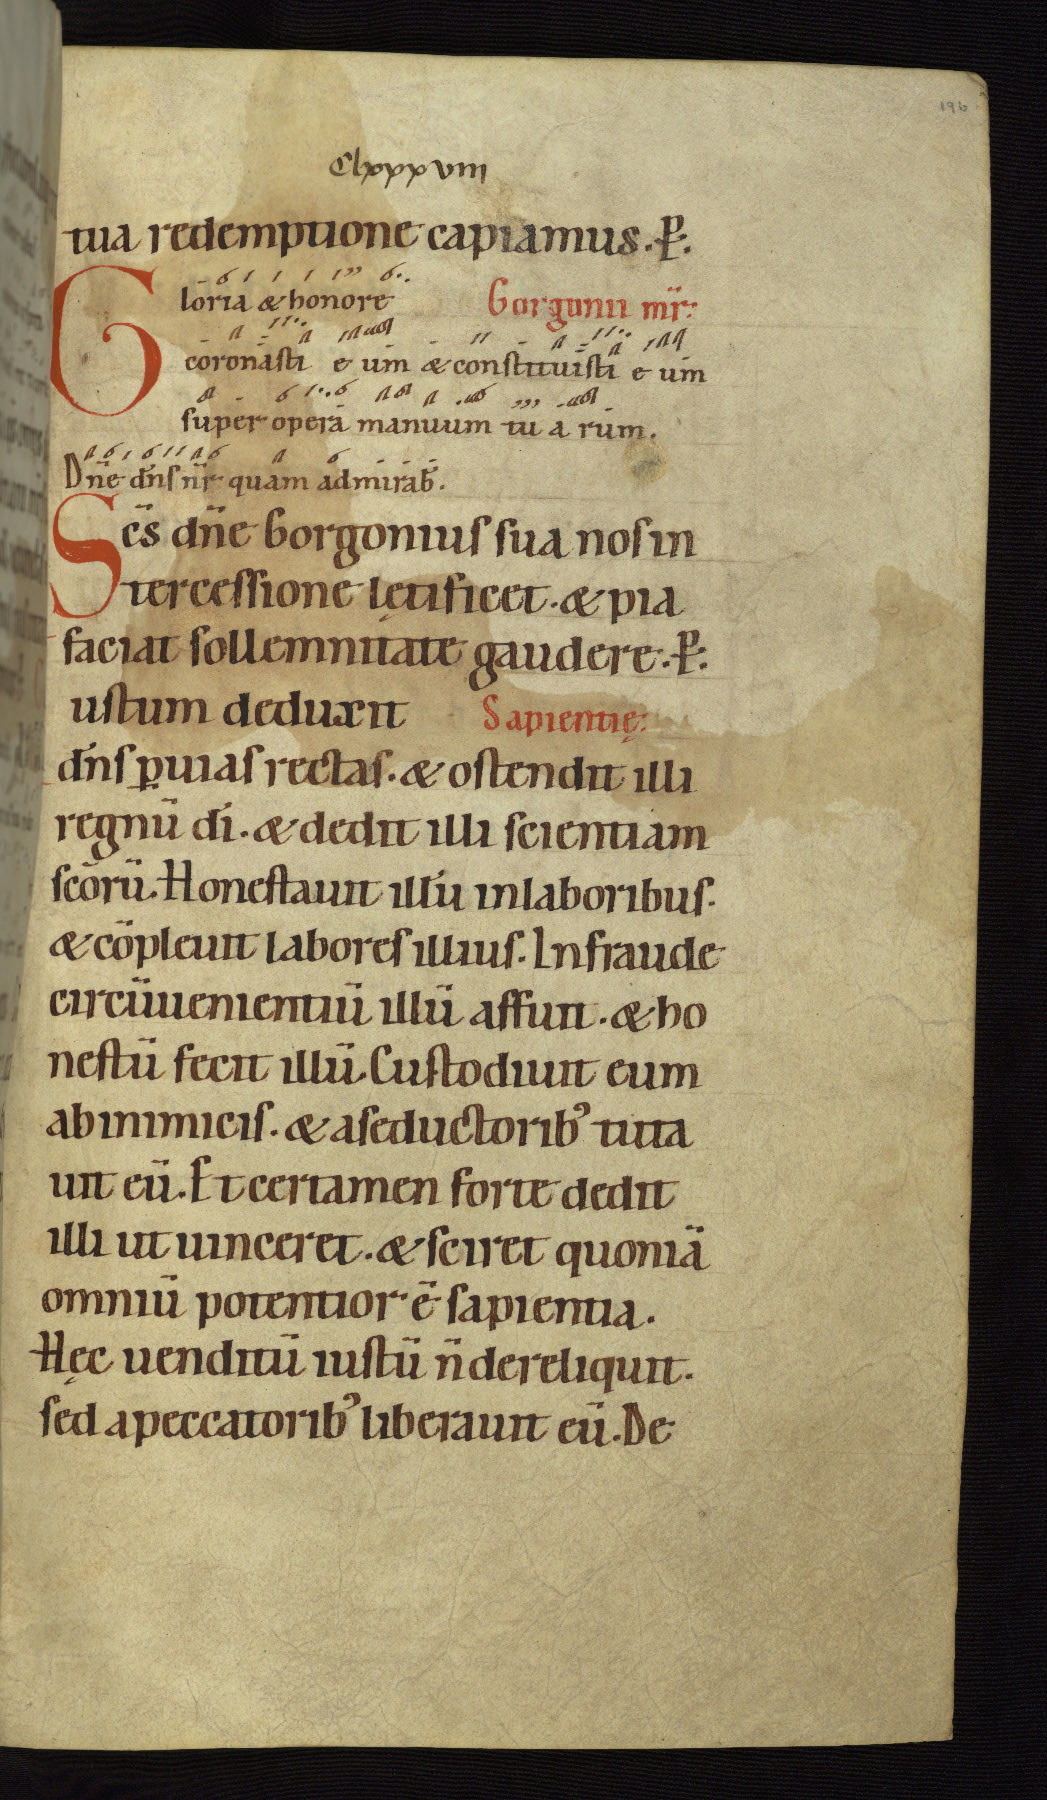 196
Clxxxviii
tua redemptione capiamus. p̄.
Gloria & honore Gorgonii m̄r:
coronasti e um & constituisti e um
super opera manuum tu a rum.
Dn̄e dn̄s nr̄ quam admirab̄.
Sc̄s dn̄e Gorgonius sua nos in
tercessione lętificet. & pia
faciat sollemnitate gaudere. p̄.
ustum deduxit Sapientię:
dn̄s ꝑ uias rectas. & ostendit illi
regnū dī. & dedit illi scientiam
scōrū. Honestauit illū in laboribus.
& cōpleuit labores illius. In fraude
circūuenientiū illū affuit. & ho
nestū fecit illū. Custodiuit eum
ab inimicis. & a seductorib᾽ tuta
uit eū. Et certamen forte dedit
illi ut uinceret. & sciret quoniā
omniū potentior ē sapientia.
Hęc uenditū iustū n̄ dereliquit.
sed a peccatorib᾽ liberauit eū. De